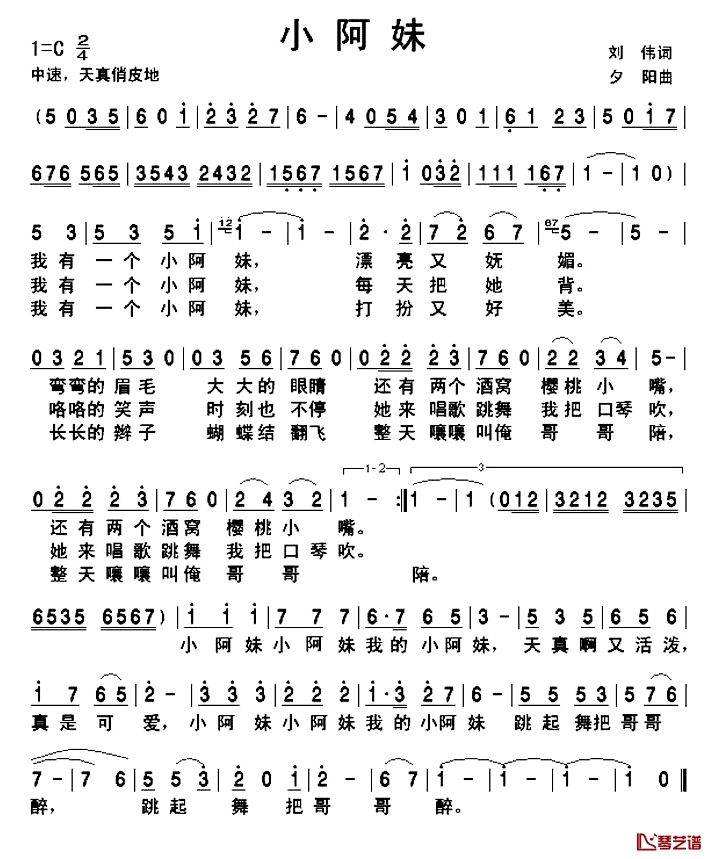 小阿妹
1=C 2/4
刘 伟词
中速，天真俏皮地
夕 阳曲
(5 035|601|2327|6-|4054|301|61 23|5017|
676 565|3543 2432|1567 1567|1 032|111 167|1-|10)|
53|53 51|12 1-|1-|2·2|72 67|67 5-|5-|
我有一个小阿妹， 漂亮又妩媚。
我有一个小阿妹， 每天把她背。
我有一个小阿妹， 打扮又好美。
0321|530|03 56|760|022 23|760|22 34|5-|
弯弯的眉毛 大大的眼睛 还有两个酒窝樱桃小嘴，
咯咯的笑声 时刻也不停 她来唱歌跳舞我把口琴吹，
长长的辫子 蝴蝶结翻飞 整天嚷嚷叫俺哥哥陪，
1-2 3
022 23|760|24 32|1-:||1-|1(012|3212 3235|
还有两个酒窝樱桃小嘴。
她来唱歌跳舞我把口琴吹。
整天嚷嚷叫俺哥哥 陪。
6535 6567)|11 1|77 7|6·7 65|3-|53 5|65 6|
小阿妹小阿妹我的小阿妹，天真啊又活泼，
17 65|2-|33 3|22 2|1·3 22|6-|55 53|5 76|
真是可爱，小阿妹小阿妹我的小阿妹 跳起舞把哥哥
7-|76|55 3|20 1|2-|2-|1-|1-|1-|10‖
醉， 跳起舞把哥哥醉。
琴艺谱